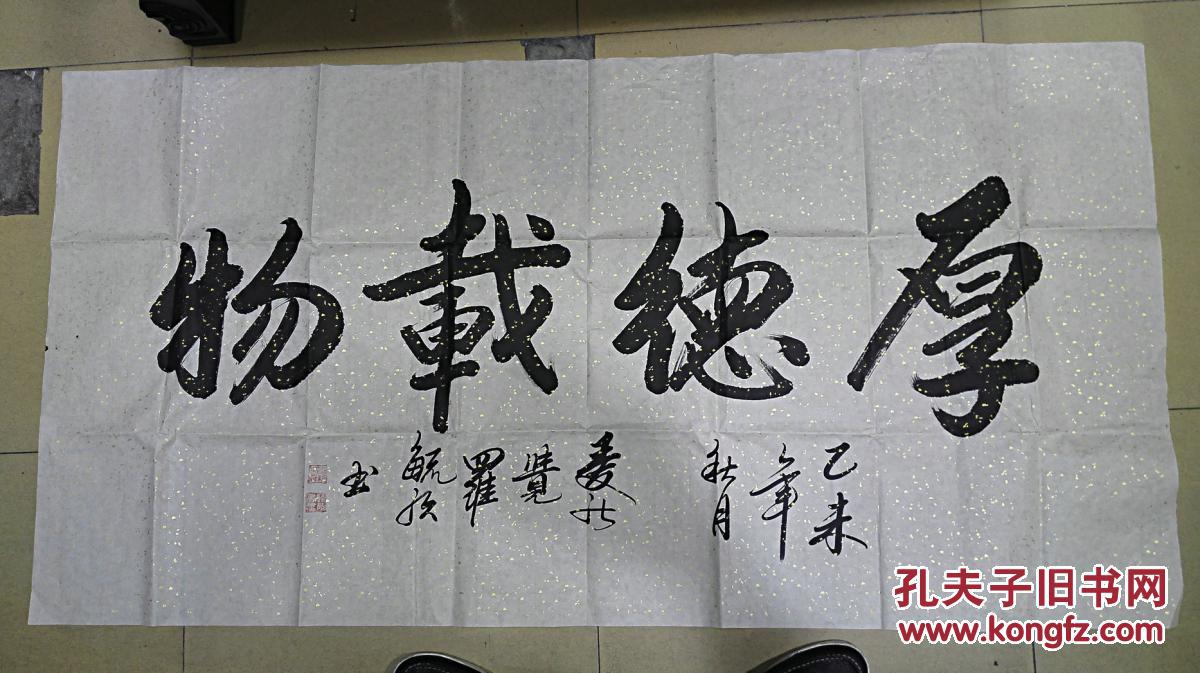 厚德載物
乙未
年
秋月
愛新
覺
羅
毓
书
孔夫子旧书网
www.kongfz.com